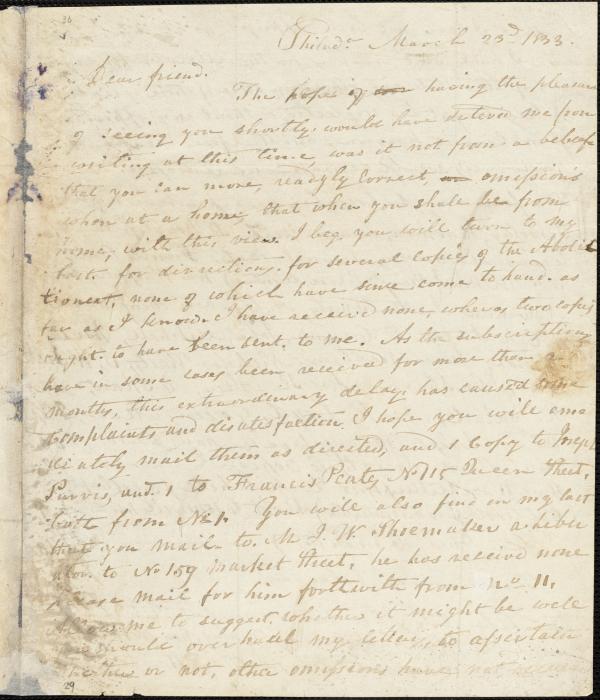 36
Philada March 23d 1833.
Dear friend.
The hope of having the pleasure
of seeing you shortly. would have detered me from
writing at this time, was it not from a beleafe
that you can more, readyly Correct, omissions
when at a home, that when you shall be from
home, with this view. I beg you will turn to my
last. for dirrections. for several Copies of the Aboli
tionest, none of which have sinse come to hand. as
far as I know. I have received none, whereas two copies
ought. to have been sent. to me. As the subscriptions
have in some cases been received for more than 2
months, this extraordinary delay, has caused some
Complaints and disatisfaction. I hope you will eme
diately, mail them as directed, and 1 Copy to Joseph
Purvis, and. 1 to Francis No 115 Queen Street,
both from No 1. You will also find in my last
that you mail to. M J. W. Shoemaker a Liber
ator. to No 159 Market Street, he has receivd none
Please mail for him forthwith from No 11.
Allow me to suggest. whether it might be well
you would over hawl my letters, to assertain
whether or not, other omissions have not
29